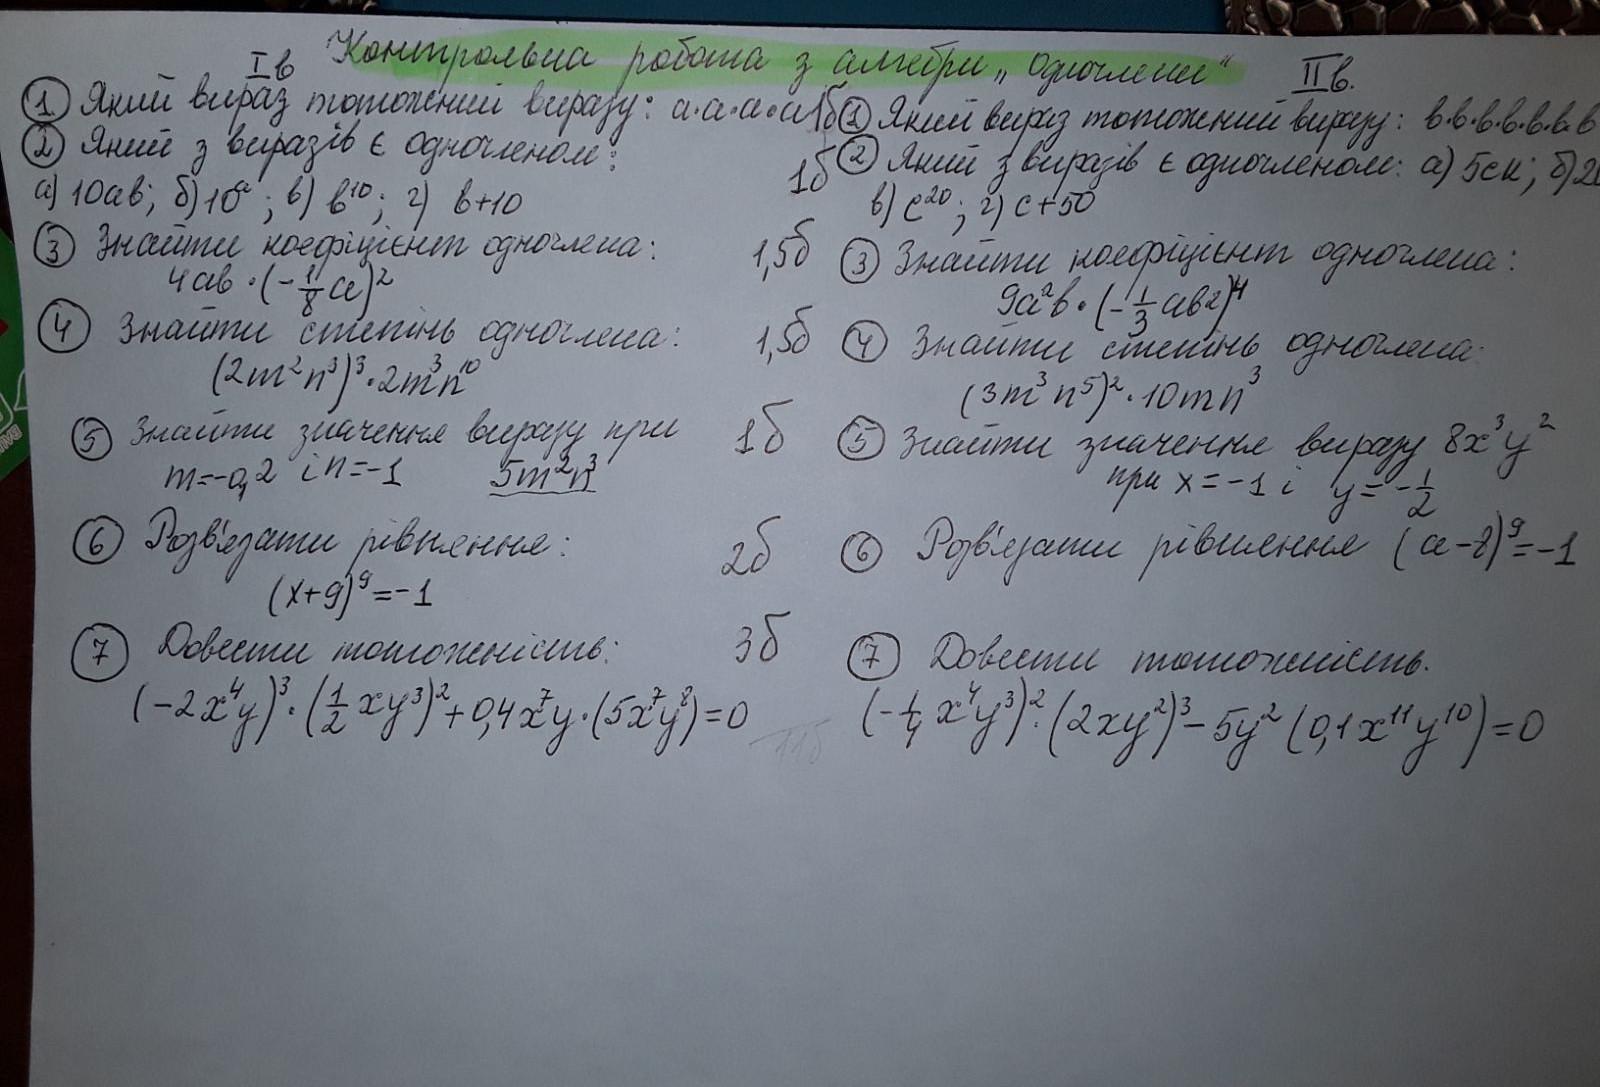 Контрольна робота з алгебри „Одночлени“
Iв
① Який вираз тотожний виразу: a·a·a·a 1б
② Який з виразів є одночленом: 1б
а) 10ав; б) 10ᵃ; в) в¹⁰; г) в+10
③ Знайти коефіцієнт одночлена: 1,5б
4ab·(-1/8 a)²
④ Знайти степінь одночлена: 1,5б
(2m²n³)³·2m³n¹⁰
⑤ Знайти значення виразу при 1б
m=-0,2 і n=-1 5m²n³
⑥ Розв'язати рівняння: 2б
(x+9)⁹=-1
⑦ Довести тотожність: 3б
(-2x⁴y)³·(1/2 xy³)²+0,4x⁷y·(5x⁷y⁸)=0
11б
IIв.
① Який вираз тотожний виразу: в·в·в·в·в·в·в
② Який з виразів є одночленом: а) 5ск; б)
в) c²⁰; г) c+50
③ Знайти коефіцієнт одночлена:
9a²b·(-1/3 ab2)⁴
④ Знайти степінь одночлена:
(3m³n⁵)²·10mn³
⑤ Знайти значення виразу 8x³y²
при x=-1 і y=-1/2
⑥ Розв'язати рівняння (a-8)⁹=-1
⑦ Довести тотожність.
(-1/4 x⁴y³)²·(2xy²)³-5y²(0,1x¹¹y¹⁰)=0